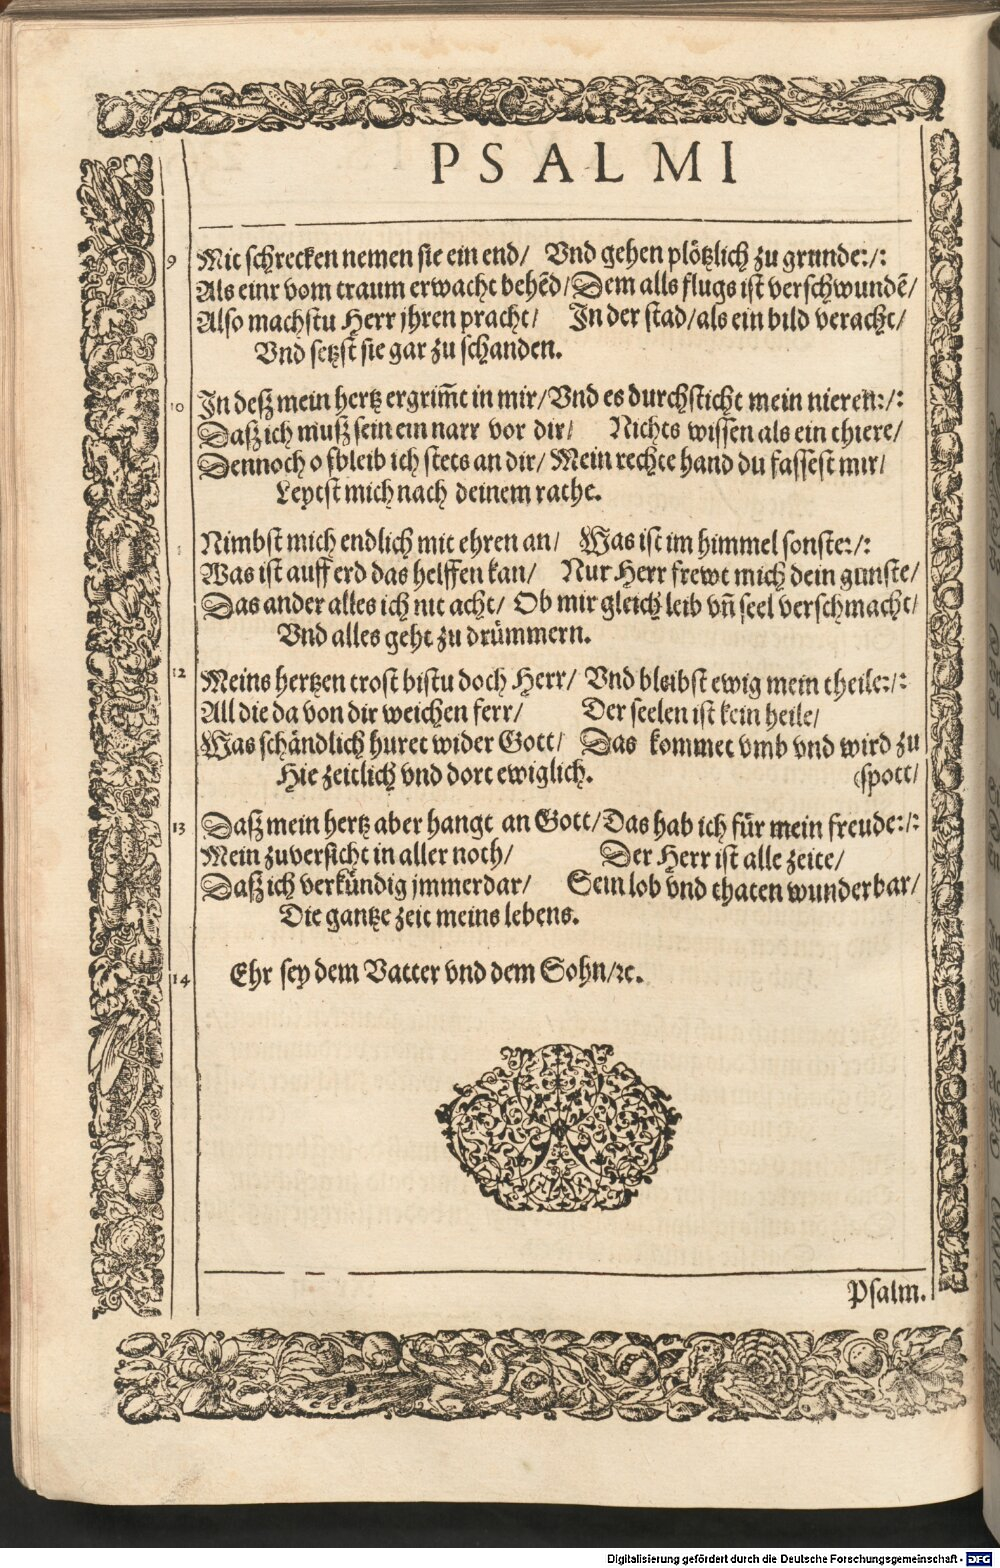 PSALMI
9 Mit schrecken nemen sie ein end/ Vnd gehen plötzlich zu grunde:/:
Als einr vom traum erwacht behẽd/ Dem alls flugs ist verschwundẽ/
Also machstu Herr jhren pracht/ In der stad/ als ein bild veracht/
Vnd setzst sie gar zu schanden.
10 In deß mein hertz ergrim̃t in mir/ Vnd es durchsticht mein nieren:/:
Daß ich muß sein ein narr vor dir/ Nichts wissen als ein thiere/
Dennoch so bleib ich stets an dir/ Mein rechte hand du fassest mir/
Leytst mich nach deinem rathe.
Nimbst mich endlich mit ehren an/ Was ist im himmel sonste:/:
Was ist auff erd das helffen kan/ Nur Herr frewt mich dein gunste/
Das ander alles ich nit acht/ Ob mir gleich leib vñ seel verschmacht/
Vnd alles geht zu drümmern.
12 Meins hertzen trost bistu doch Herr/ Vnd bleibst ewig mein theile:/:
All die da von dir weichen ferr/ Der seelen ist kein heile/
Was schändlich huret wider Gott/ Das kommet vmb vnd wird zu
Hie zeitlich vnd dort ewiglich. (spott/
13 Daß mein hertz aber hangt an Gott/ Das hab ich für mein freude:/:
Mein zuversicht in aller noth/ Der Herr ist alle zeite/
Daß ich verkündig jmmerdar/ Sein lob vnd thaten wunderbar/
Die gantze zeit meins lebens.
14 Ehr sey dem Vatter vnd dem Sohn/ ꝛc.
Psalm.
Digitalisierung gefördert durch die Deutsche Forschungsgemeinschaft - DFG